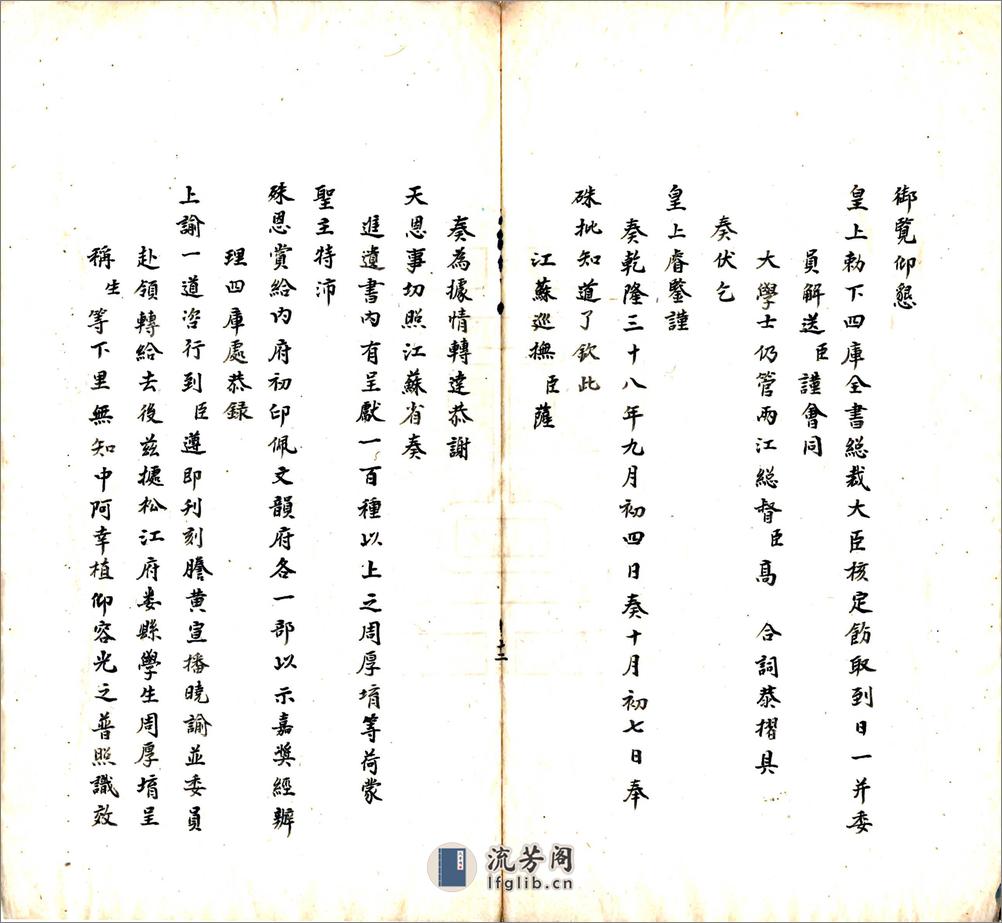 御覽仰懇
皇上勅下四庫全書総裁大臣核定飭取到日一并委
員解送臣謹會同
大學士仍管兩江総督臣高　合詞恭摺具
奏伏乞
皇上睿鑒謹
奏乾隆三十八年九月初四日奏十月初七日奉
硃批知道了欽此
江蘇巡撫臣薩
十二
奏為據情轉達恭謝
天恩事切照江蘇省奏
進遺書內有呈獻一百種以上之周厚堉等荷蒙
聖主特沛
殊恩賞給內府初印佩文韻府各一部以示嘉奬經辦
理四庫處恭録
上諭一道咨行到臣遵即刋刻謄黃宣播曉諭並委員
赴領轉給去後兹據松江府婁縣學生周厚堉呈
稱生等下里無知中阿幸植仰容光之普照識效
流芳阁
lfglib.cn